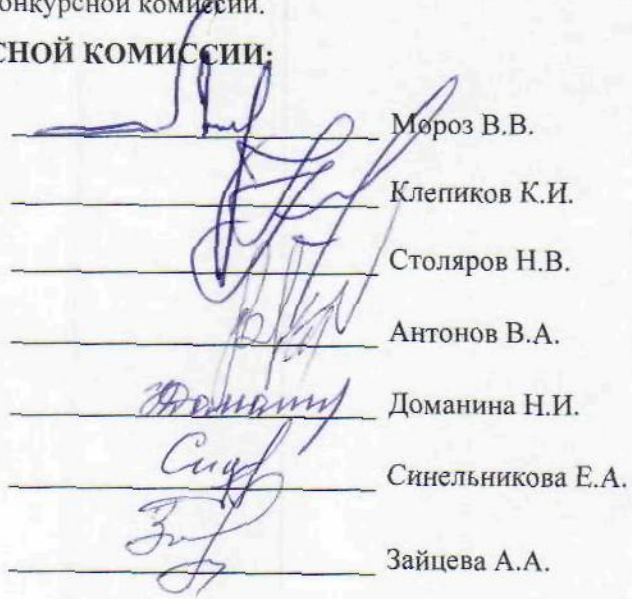 онкурсной комиссии.
СНОЙ КОМИССИИ:
Мороз В.В.
Клепиков К.И.
Столяров Н.В.
Антонов В.А.
Доманина Н.И.
Синельникова Е.А.
Зайцева А.А.